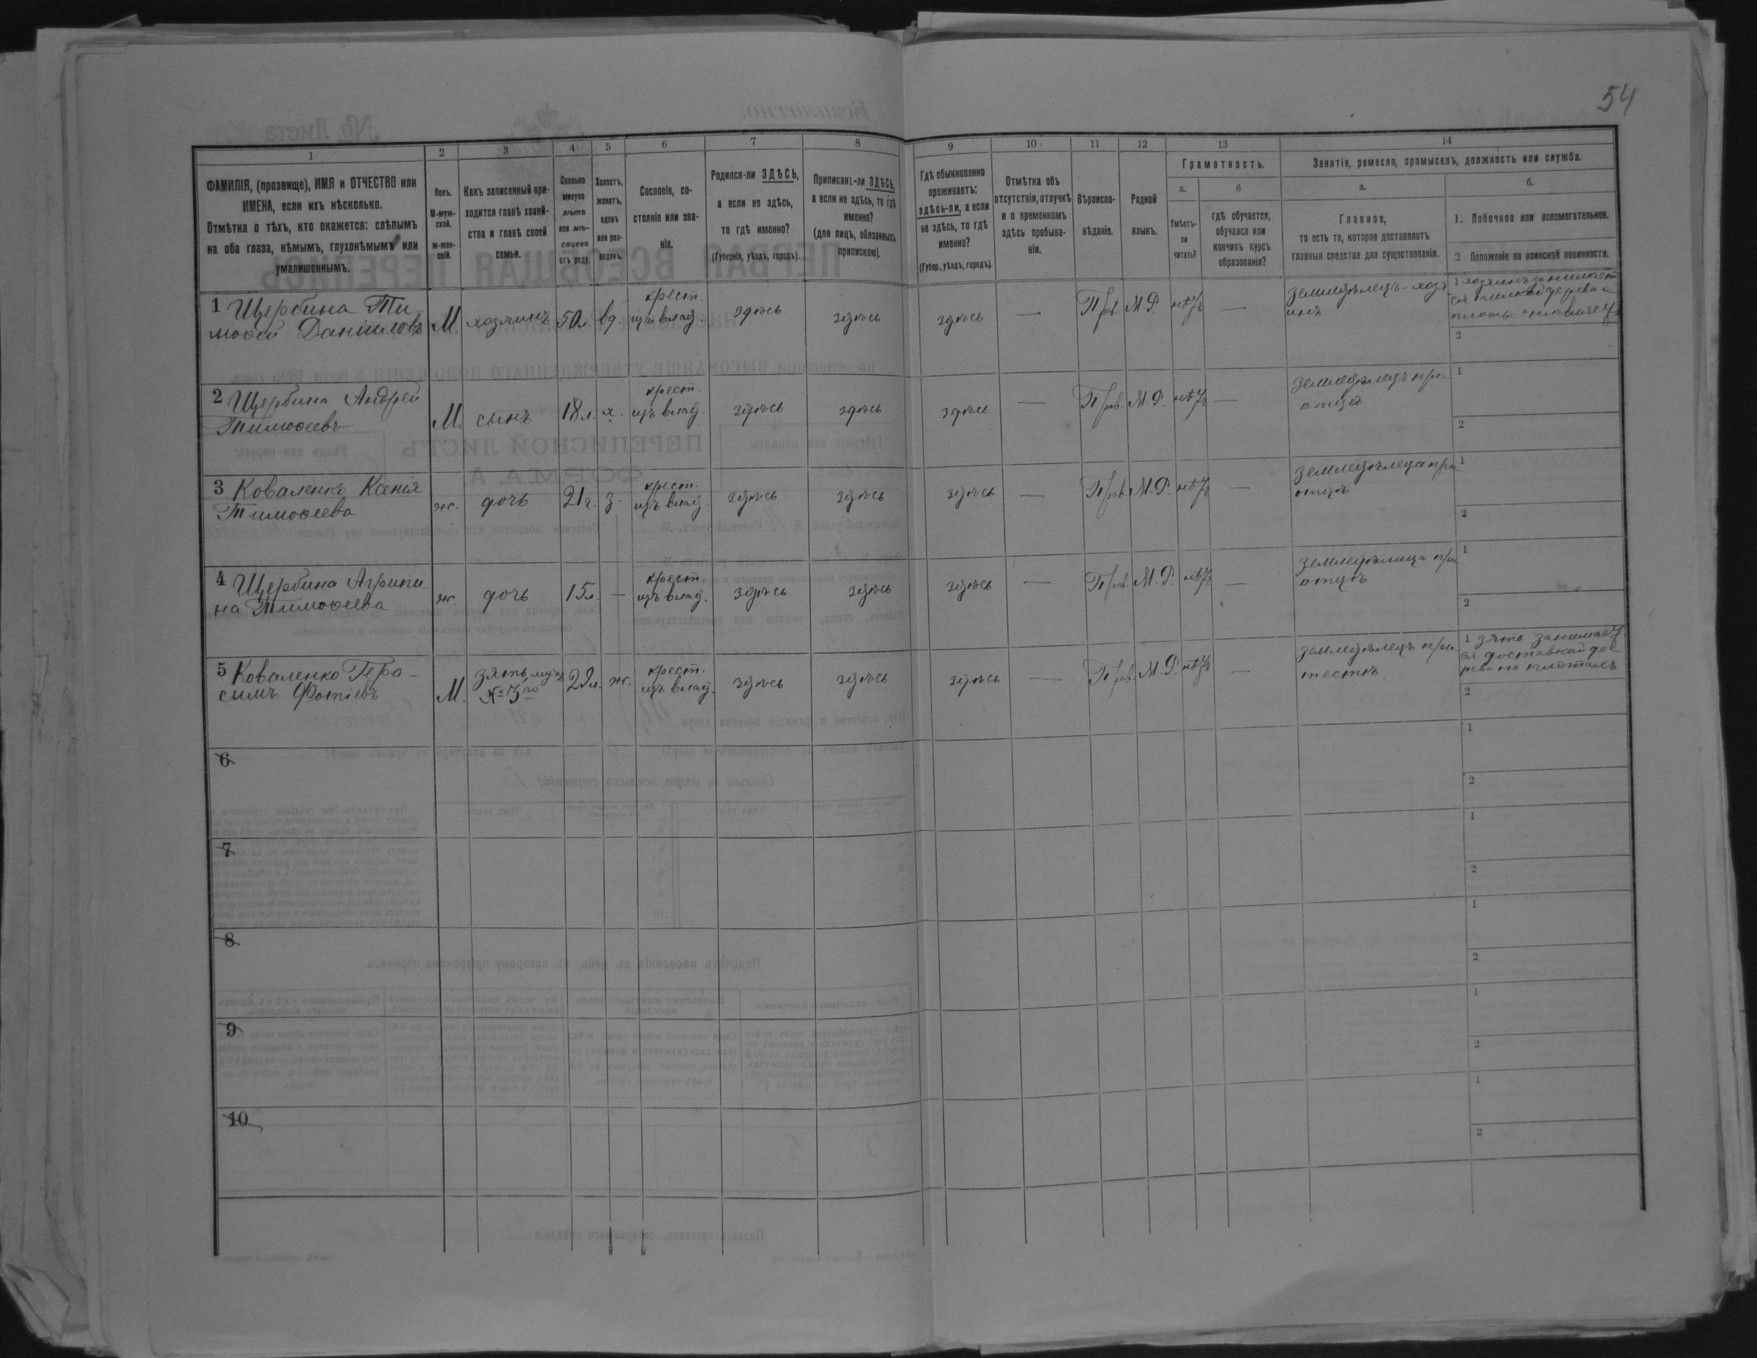 54
1 2 3 4 5 6 7 8 9 10 11 12 13 14
ФАМИЛІЯ, (прозвище), ИМЯ и ОТЧЕСТВО или
ИМЕНА, если ихъ нѣсколько.
Отмѣтка о тѣхъ, кто окажется: слѣпымъ
на оба глаза, нѣмымъ, глухонѣмымъ или
умалишеннымъ.
Полъ.
М-муж-
ской.
ж-жен-
скій.
Какъ записанный при-
ходится главѣ хозяй-
ства и главѣ своей
семьи.
Сколько
минуло
лѣтъ
или мѣ-
сяцевъ
отъ роду.
Холостъ,
женатъ,
вдовъ
или раз-
веденъ.
Сословіе, со-
стояніе или зва-
ніе.
Родился-ли ЗДѢСЬ,
а если не здѣсь,
то гдѣ именно?
(Губернія, уѣздъ, городъ).
Приписанъ-ли ЗДѢСЬ,
а если не здѣсь, то гдѣ
именно?
(для лицъ, обязанныхъ
припискою).
Гдѣ обыкновенно
проживаетъ:
здѣсь-ли, а если
не здѣсь, то гдѣ
именно?
(Губер., уѣздъ, городъ).
Отмѣтка объ
отсутствіи, отлучкѣ
и о временномъ
здѣсь пребыва-
ніи.
Вѣроиспо-
вѣданіе.
Родной
языкъ.
Грамотность.
а.
Умѣетъ-
ли
читать?
б
гдѣ обучается,
обучался или
кончилъ курсъ
образованія?
Занятіе, ремесло, промыселъ, должность или служба.
а.
Главное,
то есть то, которое доставляетъ
главныя средства для существованія.
б.
1. Побочное или вспомогательное.
2 Положеніе по воинской повинности.
1 Щербина Ти-
мофей Даниловъ М хозяинъ 50л. вд. крест.
изъ влад. здѣсь здѣсь здѣсь — Прав. М.Р. нѣтъ — земледѣлецъ-хозя
инъ 1
2
2 Щербина Андрей
Тимофеевъ М. сынъ 18л. х. крест.
изъ влад. здѣсь здѣсь здѣсь — Прав. М.Р. нѣтъ — земледѣлецъ при
отцѣ 1
2
3 Коваленко Ксенія
Тимофеева ж. дочь 21г. з. крест.
изъ влад. здѣсь здѣсь здѣсь — Прав. М.Р. нѣтъ — при
отцѣ 1
2
4 Щербина Агрипи
на Тимофеева ж. дочь 15л. — крест.
изъ влад. здѣсь здѣсь здѣсь — Прав. М.Р. нѣтъ — при
отцѣ 1
2
5 Коваленко Гера-
симъ Фотіевъ М. зять мужъ
№ 3го 29л. ж. крест.
изъ влад. здѣсь здѣсь здѣсь — Прав. М.Р. нѣтъ — земледѣлецъ при
тестѣ 1 зять занимает
ся доставкой де-
рева на плотахъ
2
6 1
2
7 1
2
8 1
2
9 1
2
10 1
2